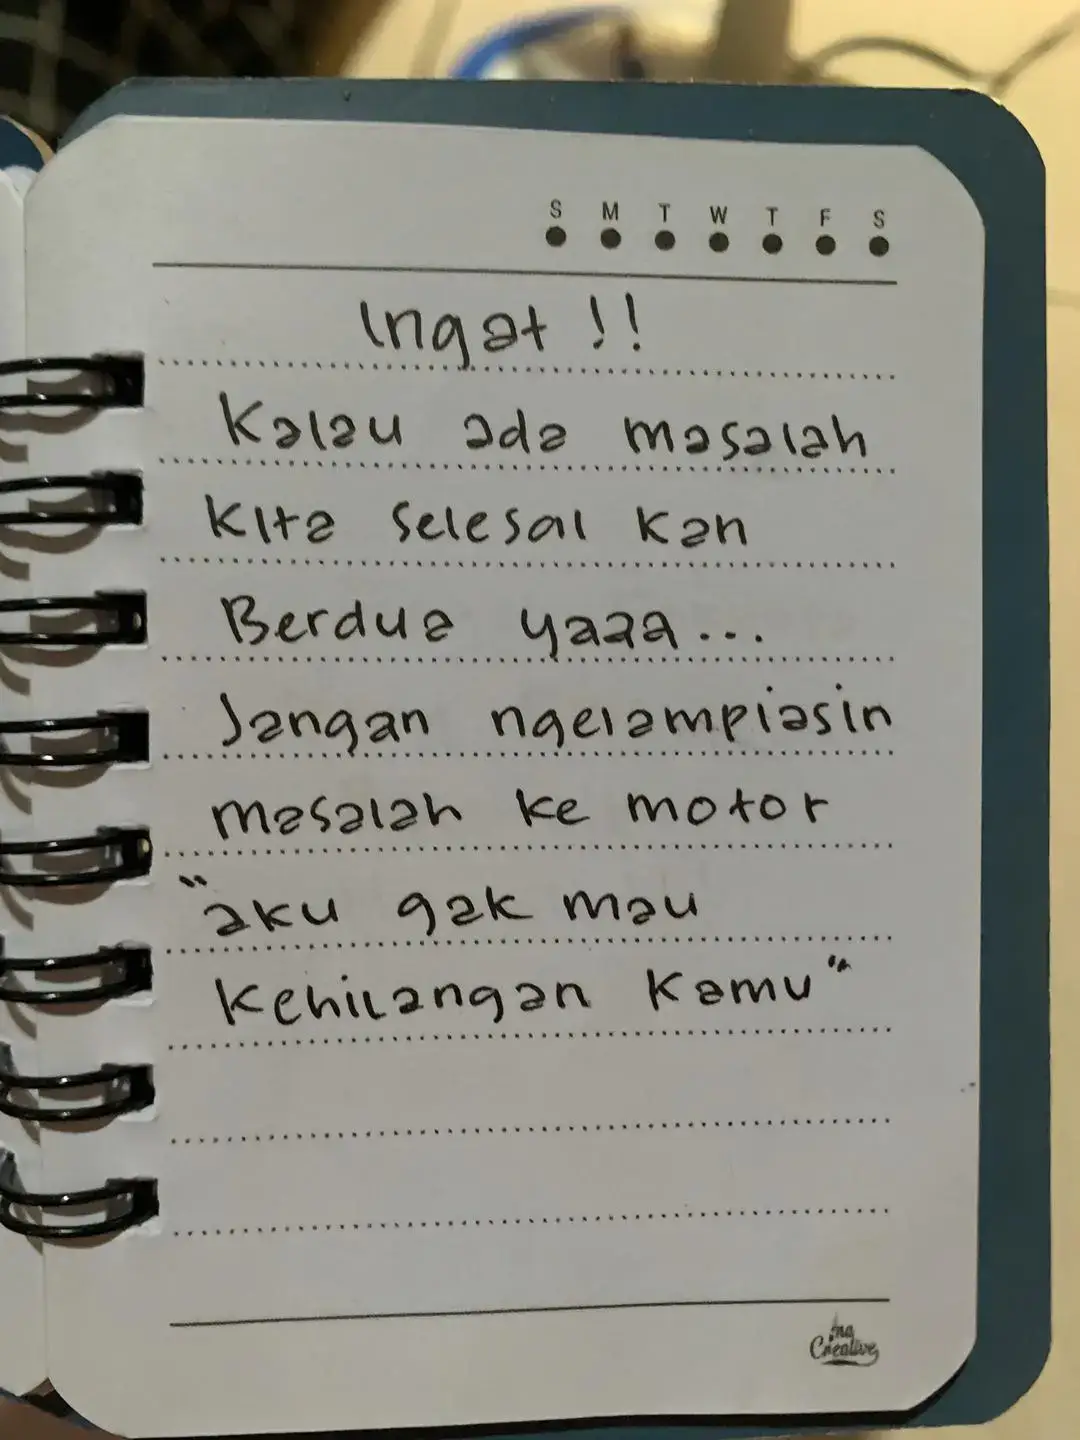 S M T W T F S
Ingat !!
Kalau ada masalah
Kita selesai kan
Berdua yaaa...
Jangan ngelampiasin
masalah ke motor
"aku gak mau
Kehilangan Kamu"
Ina
Creative